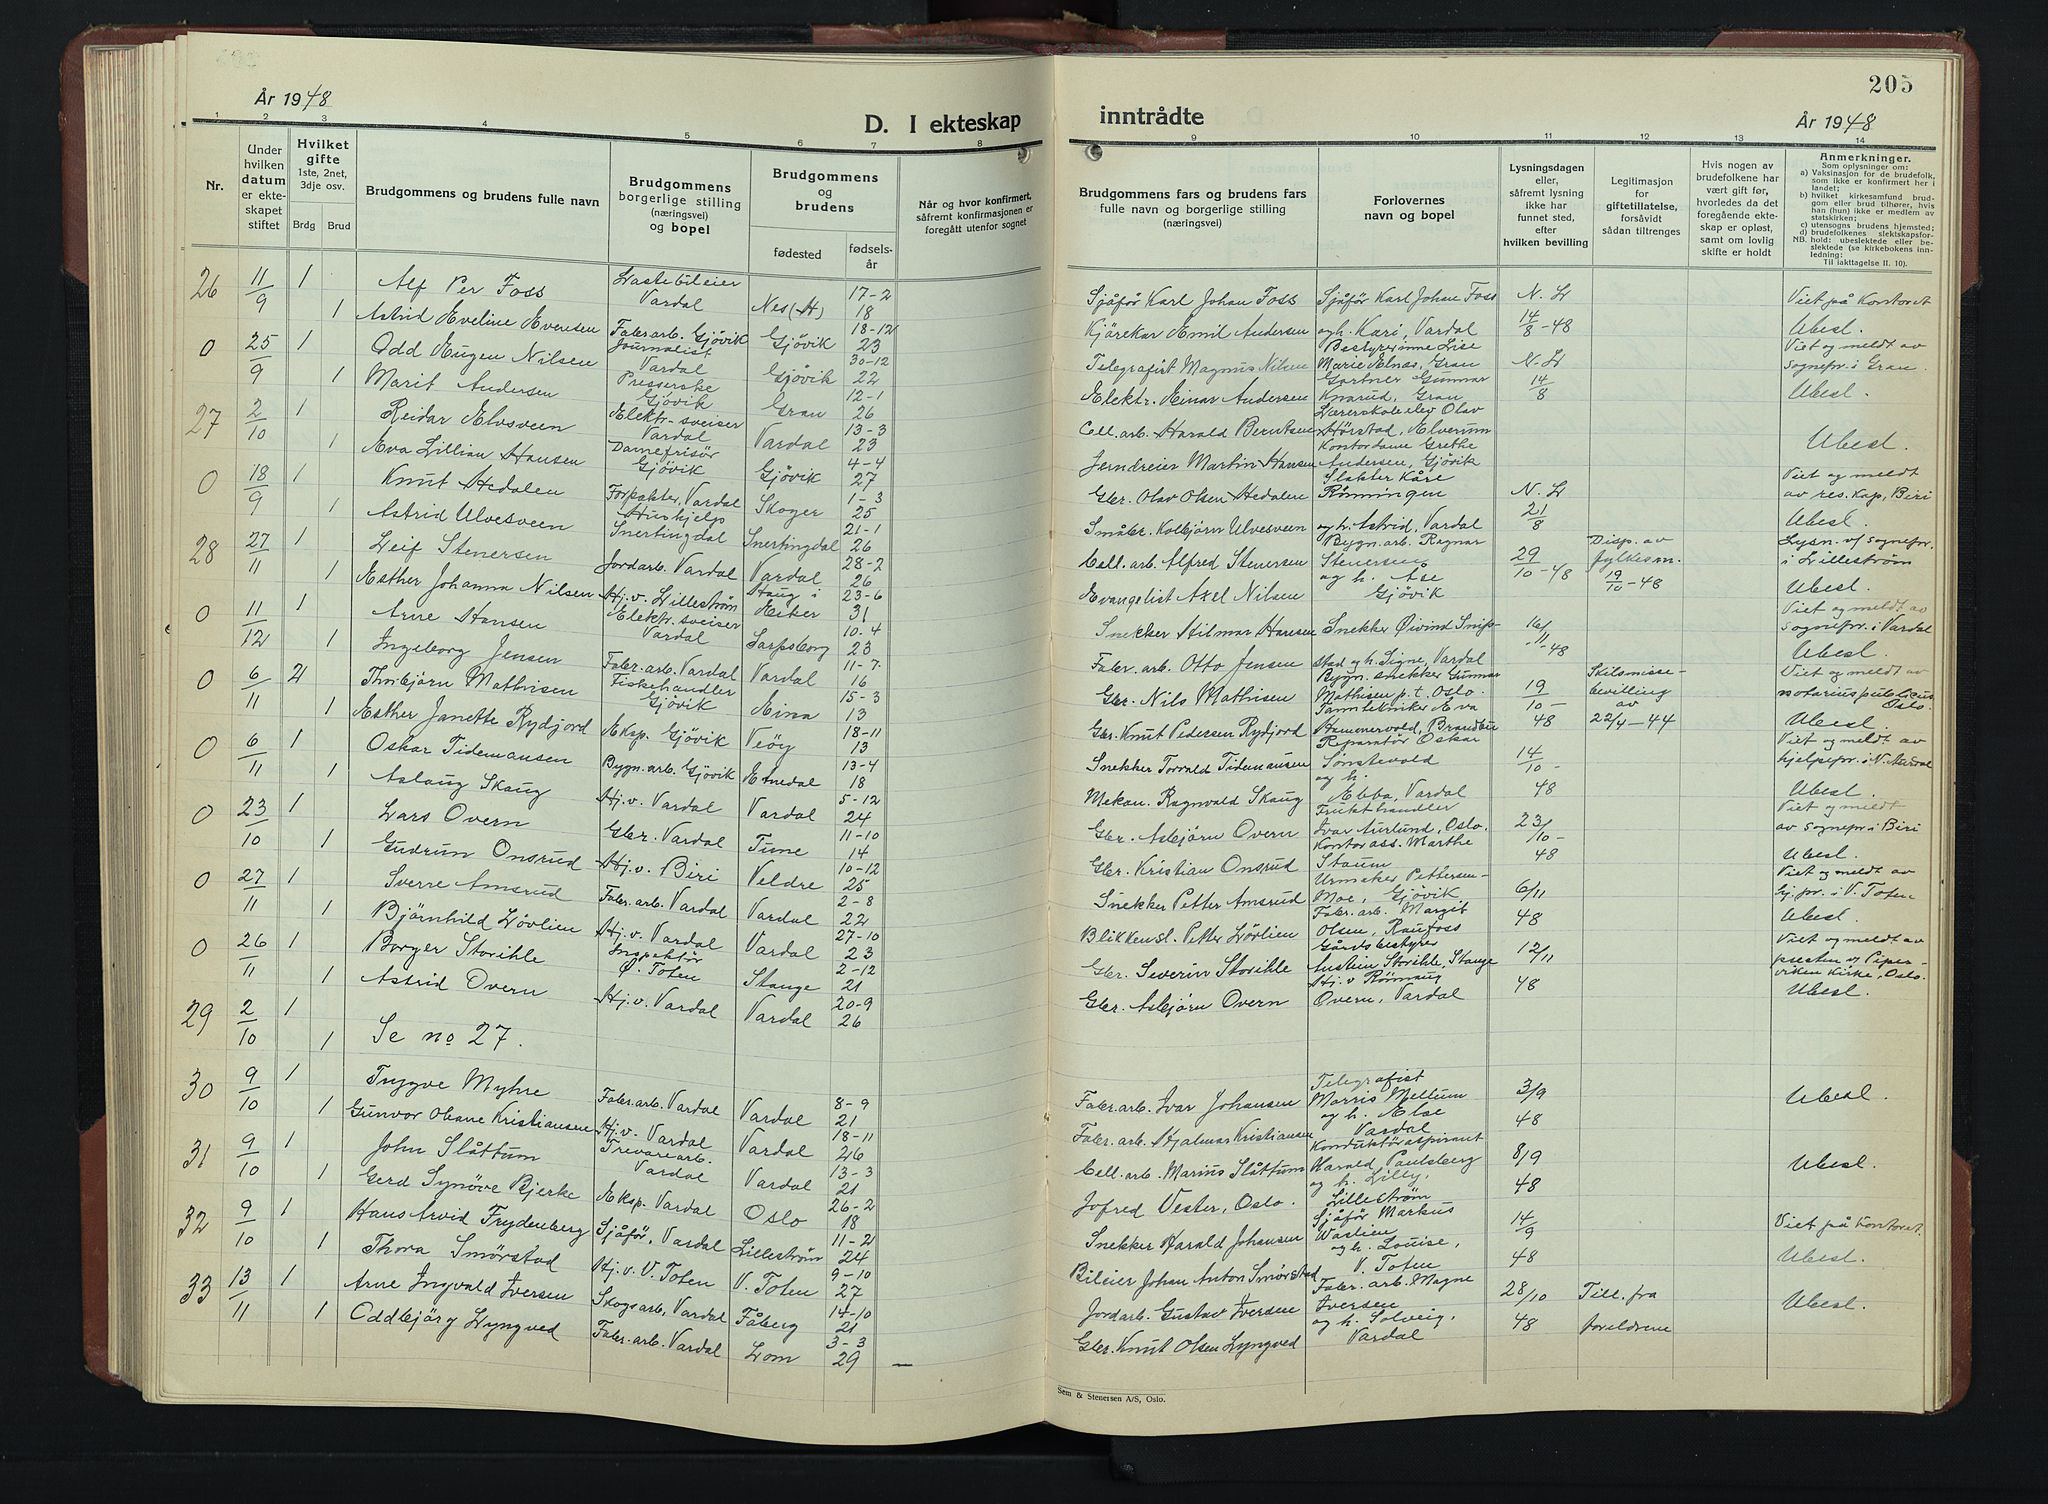 År 1948
D. I ekteskap
1 2 3 4 5 6 7 8
Nr.
Under hvilken datum er ekteskapet stiftet
Hvilket gifte 1ste, 2net, 3dje osv.
Brdg Brud
Brudgommens og brudens fulle navn
Brudgommens borgerlige stilling (næringsvei) og bopel
Brudgommens og brudens
fødested
fødselsår
Når og hvor konfirmert, såfremt konfirmasjonen er foregått utenfor sognet
26 11/9 1 Alf Per Foss Lastebileier Vardal Nes (H) 17-2 18
1 Astrid Eveline Evensen Faler.arb. Gjøvik Gjøvik 18-12 23
0 25/9 1 Odd Eugen Nilsen Journalist Vardal Gjøvik 30-12 22
1 Marit Andersen Presserske Gjøvik Gran 12-1 26
27 2/10 1 Reidar Elvsveen Elektr.-sveiser Vardal Vardal 13-3 23
1 Eva Lillian Hansen Damefrisör Gjøvik Gjøvik 4-4 27
0 18/9 1 Knut Hedalen Forpakter, Vardal Skoger 1-3 25
1 Astrid Ulvesveen Hushjelp Snertingdal Snertingdal 21-1 26
28 27/11 1 Leif Stenersen Jordarb. Vardal Vardal 28-2 26
1 Esther Johanna Nilsen Hj.v. Lilleström Haug i Eiker 23-6 31
0 11/12 1 Arne Hansen Elektr. sveiser Vardal Sarpsborg 10-4 23
1 Ingeborg Jensen Faler.arb. Vardal Vardal 11-7 16
0 6/11 2 Thorbjörn Mathisen Fiskehandler Gjøvik Eina 15-3 13
1 Esther Janette Rydjord Eksp. Gjøvik Veöy 18-11 13
0 6/11 1 Oskar Tidemansen Bygn.arb. Gjøvik Etnedal 13-4 18
1 Aslaug Skaug Hj.v. Vardal Vardal 5-12 24
0 23/10 1 Lars Overn Gbr. Vardal Tune 11-10 14
1 Gudrun Onsrud Hj.v. Biri Veldre 10-12 25
0 27/11 1 Sverre Amsrud Faler.arb. Vardal Vardal 2-8 22
1 Björnhild Lövlien Hj.v. Vardal Vardal 27-10 23
0 26/11 1 Borger Storihle Inspektör Ö. Toten Stange 2-12 21
1 Astrid Overn Hj.v. Vardal Vardal 20-9 26
29 2/10 1 1 Se no 27.
30 9/10 1 Trygve Myhre Faler.arb. Vardal Vardal 8-9 21
1 Gunvor Oliane Kristiansen Hj.v. Vardal Vardal 18-11 26
31 9/10 1 John Slåttum Trevarearb. Vardal Vardal 13-3 21
1 Gerd Synöve Bjerke Eksp. Vardal Oslo 26-2 18
32 9/10 1 Hans Arvid Frydenberg Sjåför, Vardal Lilleström 11-2 24
1 Thora Smörstad Hj.v. V. Toten V. Toten 9-10 27
33 13/11 1 Arne Ingvald Iversen Skogsarb. Vardal Fåberg 14-10 21
1 Oddbjörg Lyngved Faler.arb. Vardal Lom 3-3 29 —
205
inntrådte
År 1948
9 10 11 12 13 14
Brudgommens fars og brudens fars fulle navn og borgerlige stilling (næringsvei)
Forlovernes navn og bopel
Lysningsdagen eller, såfremt lysning ikke har funnet sted, efter hvilken bevilling
Legitimasjon for giftetillatelse, forsåvidt sådan tiltrenges
Hvis nogen av brudefolkene har vært gift før, hvorledes da det foregående ekteskap er opløst, samt om lovlig skifte er holdt
Anmerkninger.
Som oplysninger om:
a) Vaksinasjon for de brudefolk, som ikke er konfirmert her i landet;
b) hvilket kirkesamfund brudgom eller brud tilhører, hvis han (hun) ikke er medlem av statskirken;
c) utensogns brudens hjemsted;
d) brudefolkenes slektskapsforhold: ubeslektede eller beslektede (se kirkebokens innledning:
NB.
Til iakttagelse II. 10).
Sjåför Karl Johan Foss Sjåför Karl Johan Foss N. L. Viet på Kontoret
Kjörekar Emil Andersen og h. Kari, Vardal 14/8-48 Ubesl.
Telegrafist Magnus Nilsen Bestyrerinne Lise Marie Elnæs, Gran N. L. Viet og meldt av sognepr. i Gran.
Elektr. Einar Andersen Gartner Gunnar Knarud, Gran 14/8 Ubesl.
Cell. arb. Harald Berntsen Lærerskoleelev Olav Hörstad, Elverum
Jerndreier Martin Hansen Kontordame Grethe Andersen, Gjövik Ubesl.
Gbr. Olav Olsen Hedalen Slakter Kåre Rönningen N. L. Viet og meldt av res. kap. Biri
Småbr. Kolbjörn Ulvesveen og h. Astrid, Vardal 21/8 Ubesl.
Cell. arb. Alfred Stenersen Bygn. arb. Ragnar Stenersen 29/10-48 Disp. av fylkesm. 19/10-48 Lysn. v/ sognepr. i Lilleström
Evangelist Axel Nilsen og h. Åse Gjövik Ubesl.
Snekker Hilmar Hansen Snekker Öivind Snipstad og h. Signe, Vardal 16/11-48 Viet og meldt av sognepr. i Vardal
Faler. arb. Otto Jensen Ubesl.
Gbr. Nils Mathisen Bygn. snekker Gunnar Mathisen p. t. Oslo. 19/10-48 Skilsmissebevilling av 22/4-44 Viet og meldt av notarius publicus Oslo.
Gbr. Knut Pedersen Rydjord Tanntekniker Eva Hammervold, Brandbu Ubesl.
Snekker Torvald Tidemansen Reparatör Oskar Sönstevold 14/10-48 Viet og meldt av hjelpepr. i N. Aurdal
Mekan. Ragnvald Skaug og h. Ebba, Vardal Ubesl.
Gbr. Asbjörn Overn Frukthandler Ivar Aurlund, Oslo. 23/10-48 Viet og meldt av sognepr. i Biri
Gbr. Kristian Onsrud Kontorass. Marthe Staum Ubesl.
Snekker Petter Amsrud Urmaker Pettersen-Moe, Gjövik 6/11 48 Viet og meldt av hj. pr. i V. Toten
Blikkensl. Petter Lövlien Faler. arb. Margit Olsen, Raufoss Ubesl.
Gbr. Severin Storihle Gårdsbestyrer Austein Storihle, Stange 12/11 48 Viet og meldt av presten v/ Piperviken Kirke, Oslo.
Gbr. Asbjörn Overn Hj. v. Römaug Overn, Vardal Ubesl.
Faler. arb. Ivar Johansen Telegrafist Morris Mellum 3/9 48 Ubesl.
Faler. arb. Hjalmar Kristiansen og h. Else Vardal
Cell. arb. Marius Slåttum Konduktöraspirant Harald Paulsberg 8/9 48 Ubesl.
Jofred Vester, Oslo. og h. Lilly, Lilleström
Snekker Harald Johansen Sjåför Markus Wåslien 14/9 48 Viet på Kontoret.
Bileier Johan Anton Smörstad og h. Louise, V. Toten Ubesl.
Jordarb. Gustav Iversen Faler. arb. Magne Iversen 28/10 48 Till. fra foreldrene Ubesl.
Gbr. Knut Olsen Lyngved og h. Solveig, Vardal
Sem & Stenersen A/S, Oslo.